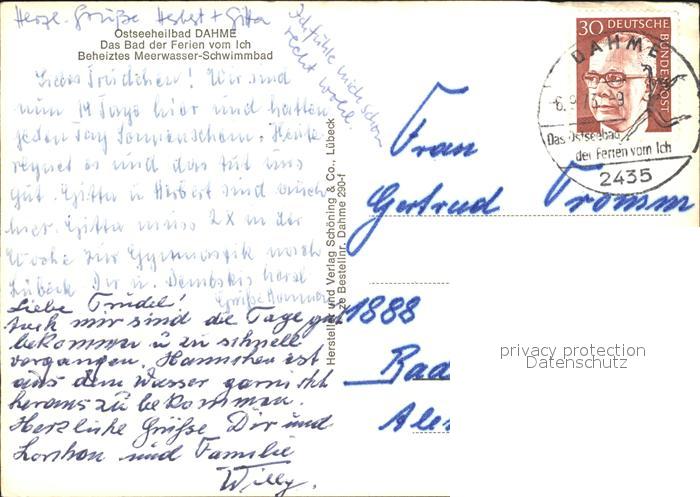 Herzl. Grüße Herbert + Gitta
Ich fühle mich schon
recht wohl
Ostseeheilbad DAHME
Das Bad der Ferien vom Ich
Beheiztes Meerwasser-Schwimmbad
Liebes Trudchen! Wir sind
nun 14 Tage hier und hatten
jeden Tag Sonnenschein. Heute
regnet es und das tut uns
gut. Gitta u Herbert sind auch
hier. Gitta muss 2x in der
Woche zur Gymnastik nach
Lübeck Dir u. herzl
Grüße
Liebe Trudel!
Auch mir sind die Tage gut
bekommen u zu schnell
vergangen. Hannchen ist
aus dem Wasser garnicht
heraus zu bekommen.
Herzliche Grüße Dir und
und Familie
Willy.
Hersteller und Verlag Schöning & Co., Lübeck
Bestellnr. Dahme 290-f
30 DEUTSCHE BUNDESPOST
DAHME
Das Ostseebad
der Ferien vom Ich
2435
Frau
Gertrud Fromm
1888
Bad
privacy protection
Datenschutz